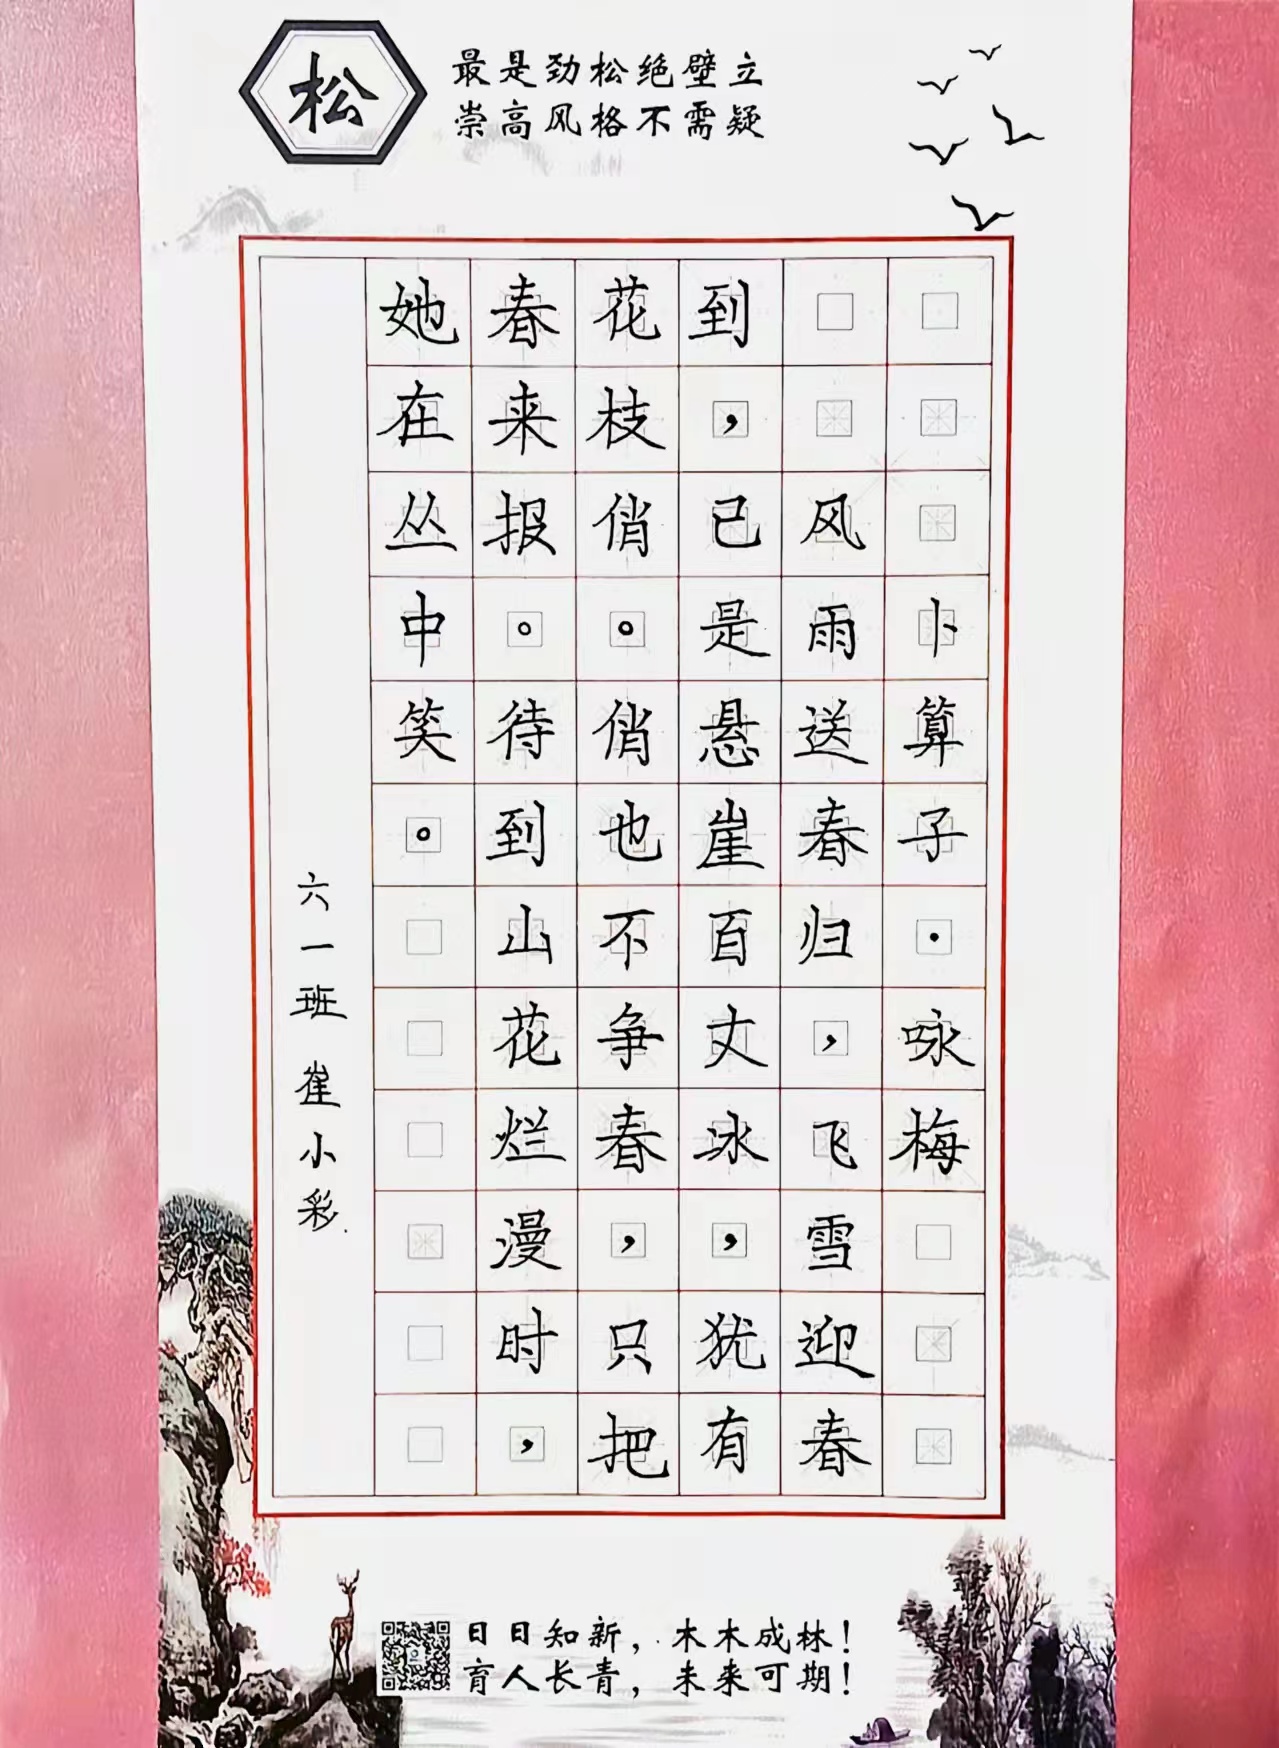 松
最是劲松绝壁立
崇高风格不需疑
卜算子·咏梅
风雨送春归，飞雪迎春
到，已是悬崖百丈冰，犹有
花枝俏。俏也不争春，只把
春来报。待到山花烂漫时，
她在丛中笑。
六一班 崔小彩
日日知新，木木成林！
育人长青，未来可期！